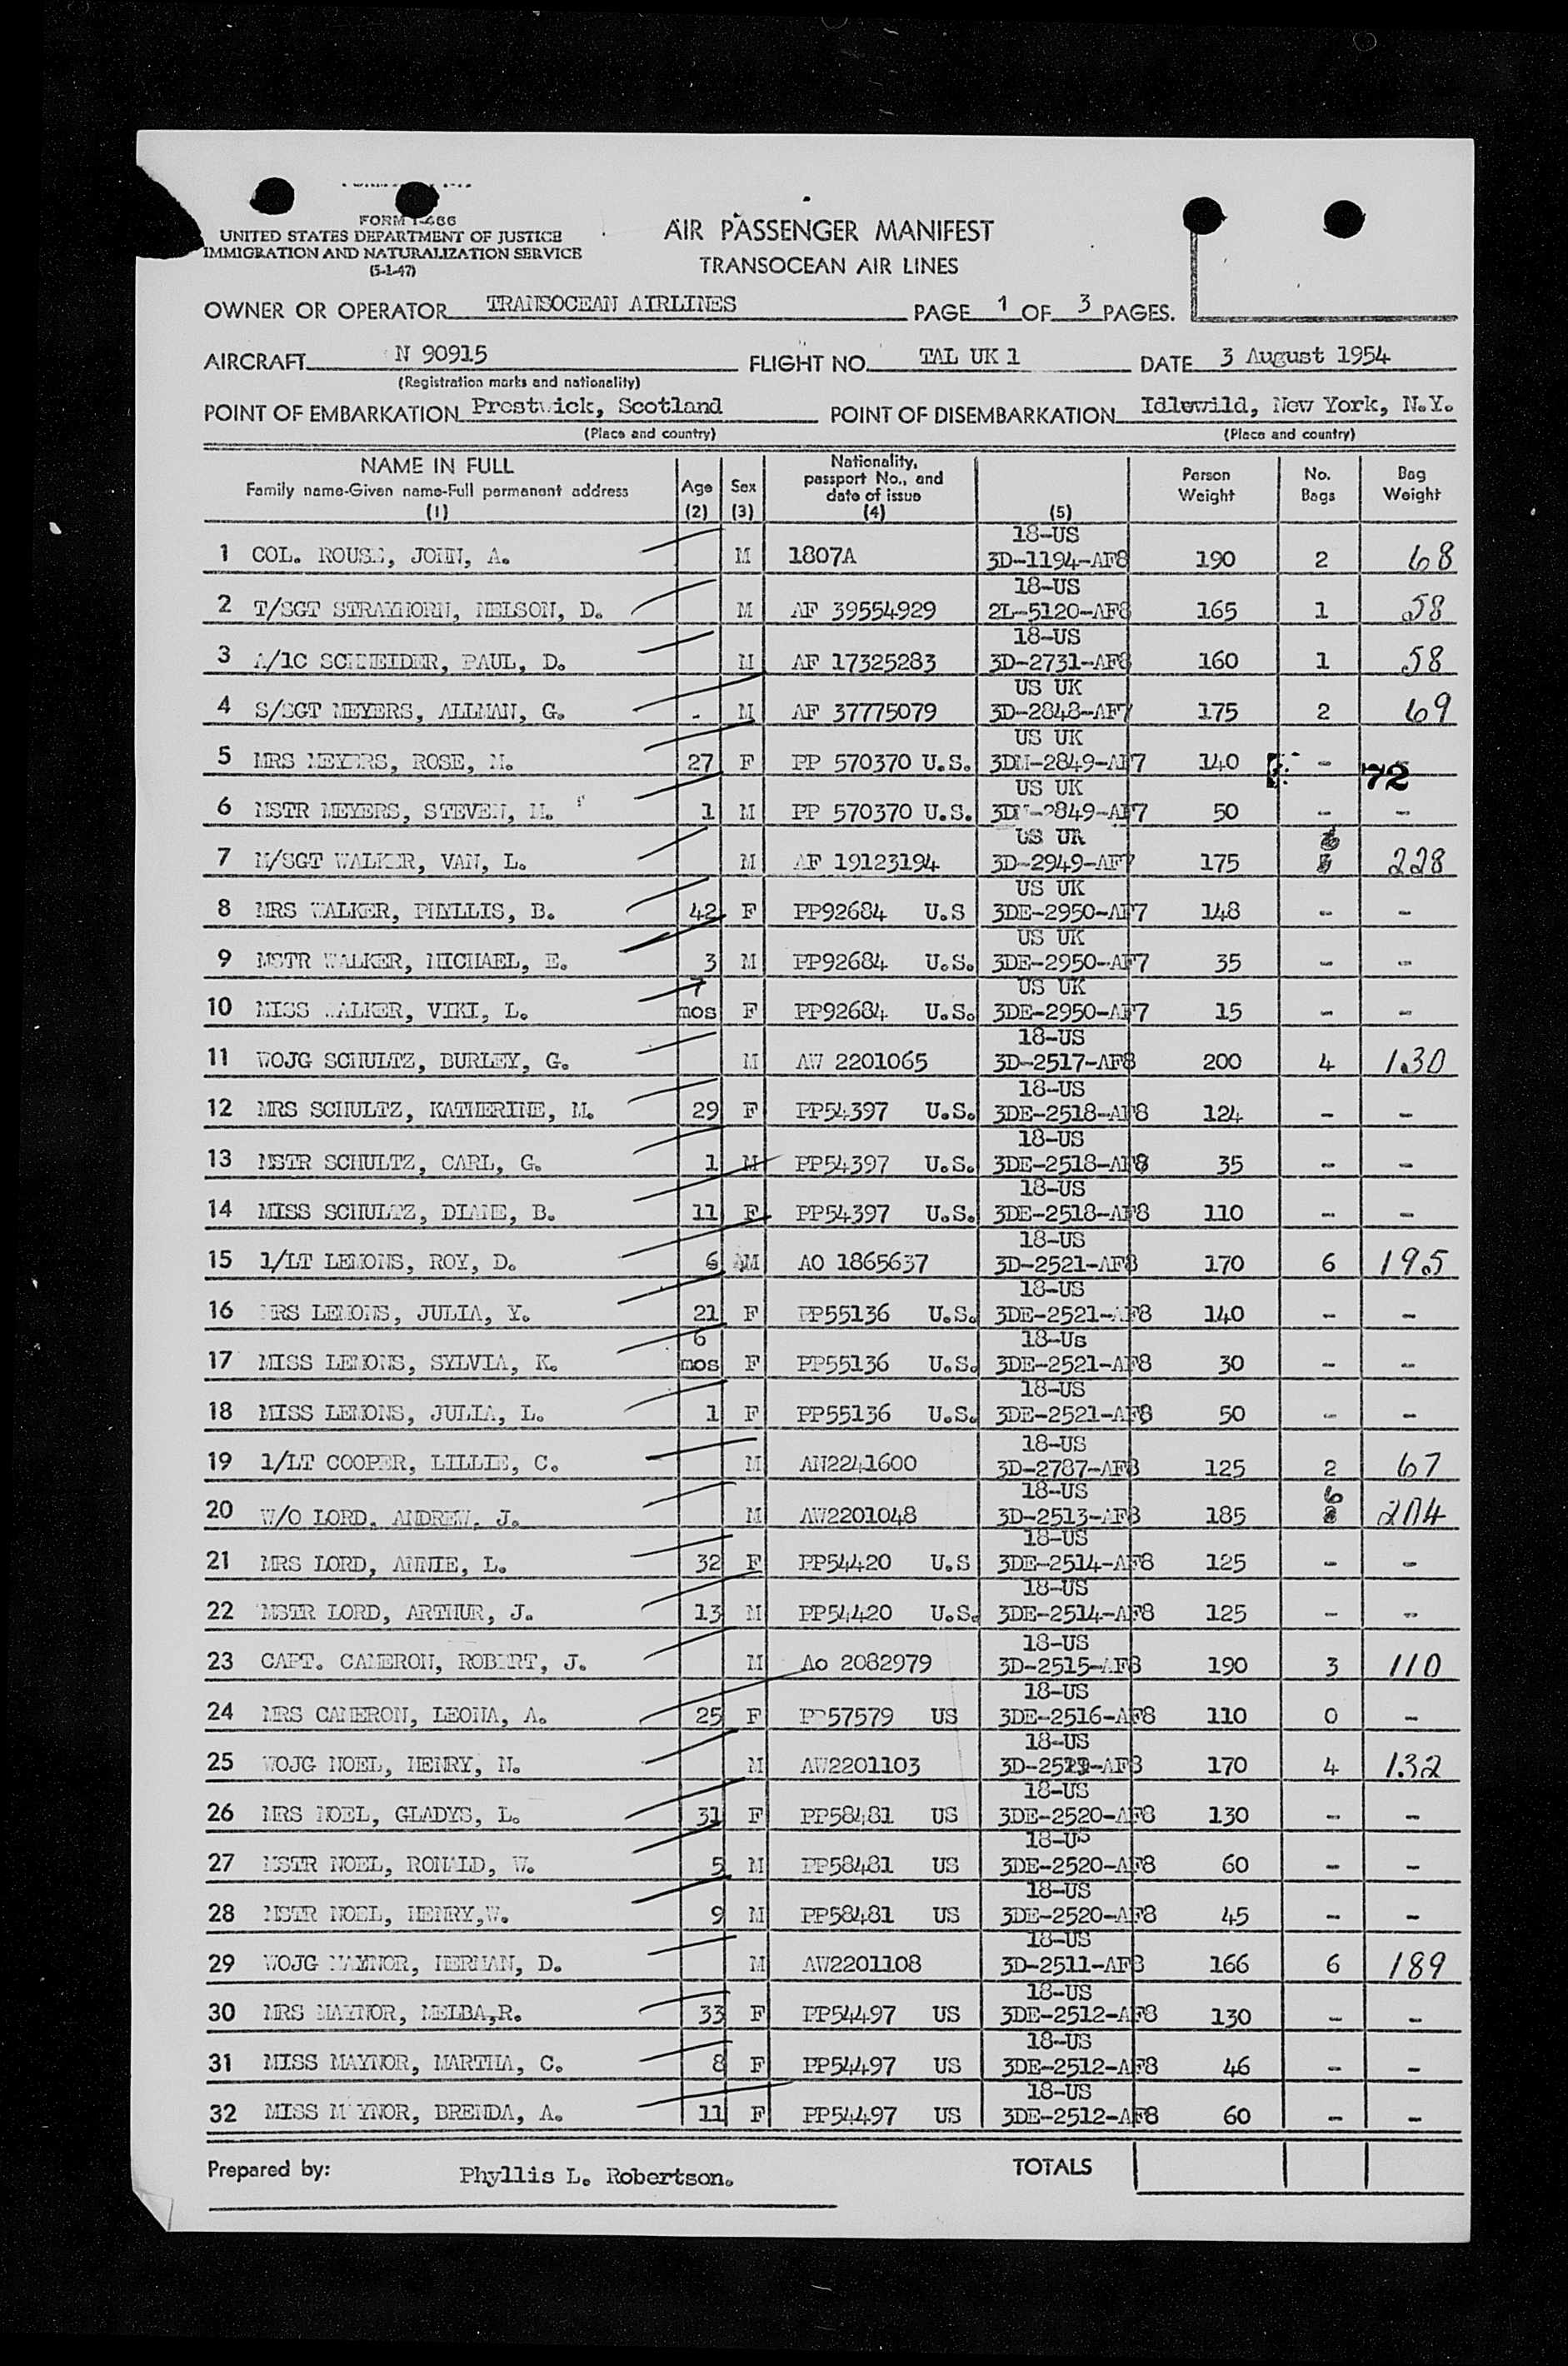 FORM I-466
UNITED STATES DEPARTMENT OF JUSTICE
IMMIGRATION AND NATURALIZATION SERVICE
(5-1-47)
AIR PASSENGER MANIFEST
TRANSOCEAN AIR LINES
OWNER OR OPERATOR TRANSOCEAN AIRLINES PAGE 1 OF 3 PAGES.
AIRCRAFT N 90915 FLIGHT NO. TAL UK 1 DATE 3 August 1954
(Registration marks and nationality)
POINT OF EMBARKATION Prestwick, Scotland POINT OF DISEMBARKATION Idlewild, New York, N.Y.
(Place and country) (Place and country)
NAME IN FULL Family name-Given name-Full permanent address (1) Age (2) Sex (3) Nationality, passport No., and date of issue (4) (5) Person Weight No. Bags Bag Weight
18-US
1 COL. ROUSE, JOHN, A. M 1807A 3D-1194-AF8 190 2 68
18-US
2 T/SGT STRAYHORN, NELSON, D. M AF 39554929 2L-5120-AF8 165 1 58
18-US
3 A/1C SCHNEIDER, PAUL, D. M AF 17325283 3D-2731-AF8 160 1 58
US UK
4 S/SGT MEYERS, ALLMAN, G. M AF 37775079 3D-2848-AF7 175 2 69
US UK
5 MRS MEYERS, ROSE, M. 27 F PP 570370 U.S. 3DM-2849-AF7 140 - 72
US UK
6 MSTR MEYERS, STEVEN, M. 1 M PP 570370 U.S. 3DM-2849-AF7 50 - -
US UK
7 M/SGT WALKER, VAN, L. M AF 19123194 3D-2949-AF7 175 228
US UK
8 MRS WALKER, PHYLLIS, B. 42 F PP92684 U.S 3DE-2950-AF7 148 - -
US UK
9 MSTR WALKER, MICHAEL, E. 3 M PP92684 U.S. 3DE-2950-AF7 35 - -
7 US UK
10 MISS WALKER, VIKI, L. mos F PP92684 U.S. 3DE-2950-AF7 15 - -
18-US
11 WOJG SCHULTZ, BURLEY, G. M AW 2201065 3D-2517-AF8 200 4 130
18-US
12 MRS SCHULTZ, KATHERINE, M. 29 F PP54397 U.S. 3DE-2518-AF8 124 - -
18-US
13 MSTR SCHULTZ, CARL, G. 1 M PP54397 U.S. 3DE-2518-AF8 35 - -
18-US
14 MISS SCHULTZ, DIANE, B. 11 F PP54397 U.S. 3DE-2518-AF8 110 - -
18-US
15 1/LT LEMONS, ROY, D. 6 M AO 1865637 3D-2521-AF8 170 6 195
18-US
16 MRS LEMONS, JULIA, Y. 21 F PP55136 U.S. 3DE-2521-AF8 140 - -
6 18-Us
17 MISS LEMONS, SYLVIA, K. mos F PP55136 U.S. 3DE-2521-AF8 30 - -
18-US
18 MISS LEMONS, JULIA, L. 1 F PP55136 U.S. 3DE-2521-AF8 50 - -
18-US
19 1/LT COOPER, LILLIE, C. M AN2241600 3D-2787-AF8 125 2 67
18-US 6
20 W/O LORD, ANDREW, J. M AW2201048 3D-2513-AF8 185 204
18-US
21 MRS LORD, ANNIE, L. 32 F PP54420 U.S 3DE-2514-AF8 125 - -
18-US
22 MSTR LORD, ARTHUR, J. 13 M PP54420 U.S. 3DE-2514-AF8 125 - -
18-US
23 CAPT. CAMERON, ROBERT, J. M Ao 2082979 3D-2515-AF8 190 3 110
18-US
24 MRS CAMERON, LEONA, A. 25 F PP57579 US 3DE-2516-AF8 110 0 -
18-US
25 WOJG NOEL, HENRY, N. M AW2201103 170 4 132
18-US
26 MRS NOEL, GLADYS, L. 31 F PP58481 US 3DE-2520-AF8 130 - -
18-US
27 MSTR NOEL, RONALD, W. 5 M PP58481 US 3DE-2520-AF8 60 - -
18-US
28 MSTR NOEL, HENRY,W. 9 M PP58481 US 3DE-2520-AF8 45 - -
18-US
29 WOJG MAYNOR, HERMAN, D. M AW2201108 3D-2511-AF8 166 6 189
18-US
30 MRS MAYNOR, MELBA,R. 33 F PP54497 US 3DE-2512-AF8 130 - -
18-US
31 MISS MAYNOR, MARTHA, C. 8 F PP54497 US 3DE-2512-AF8 46 - -
18-US
32 MISS MAYNOR, BRENDA, A. 11 F PP54497 US 3DE-2512-AF8 60 - -
Prepared by: Phyllis L. Robertson. TOTALS